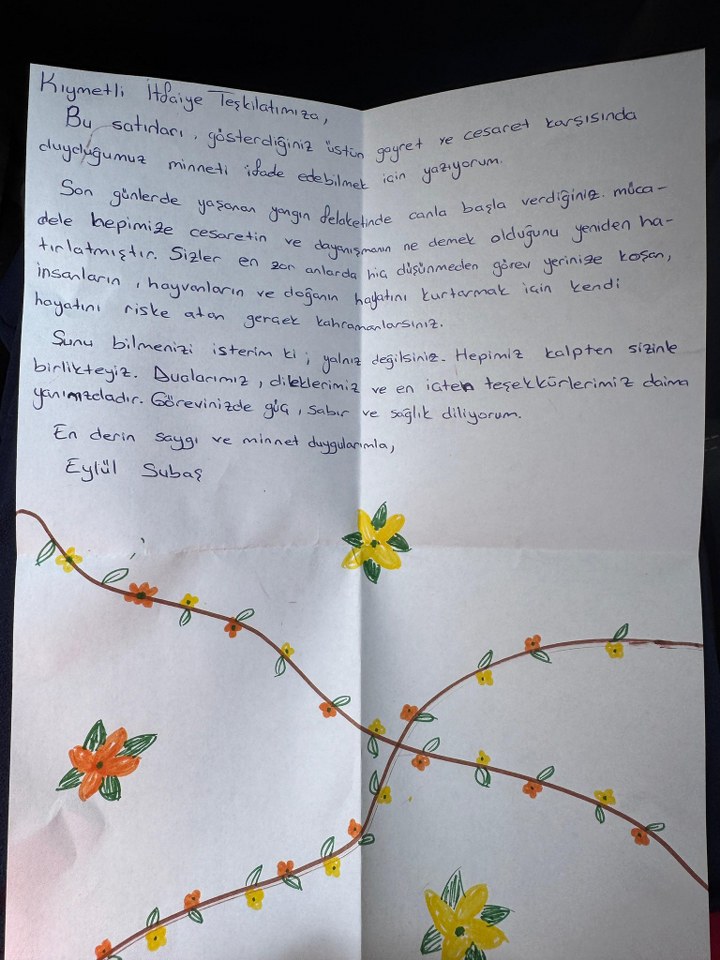 Kıymetli İtfaiye Teşkilatımıza,
Bu satırları, gösterdiğiniz üstün gayret ve cesaret karşısında
duyduğumuz minneti ifade edebilmek için yazıyorum.
Son günlerde yaşanan yangın felaketinde canla başla verdiğiniz müca-
dele hepimize cesaretin ve dayanışmanın ne demek olduğunu yeniden ha-
tırlatmıştır. Sizler en zor anlarda hiç düşünmeden görev yerinize koşan,
insanların, hayvanların ve doğanın hayatını kurtarmak için kendi
hayatını riske atan gerçek kahramanlarsınız.
Şunu bilmenizi isterim ki; yalnız değilsiniz. Hepimiz kalpten sizinle
birlikteyiz. Dualarımız, dileklerimiz ve en içten teşekkürlerimiz daima
yanınızdadır. Görevinizde güç, sabır ve sağlık diliyorum.
En derin saygı ve minnet duygularımla,
Eylül Subaş